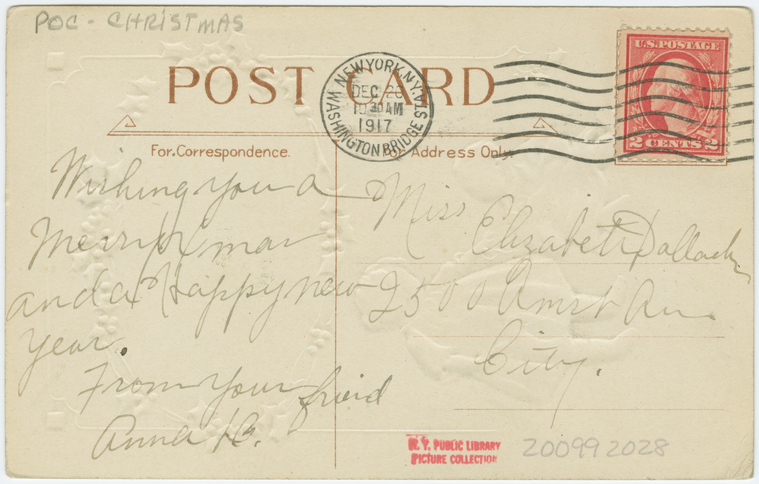 POC - CHRISTMAS
POST CARD
NEW YORK, N.Y.
WASHINGTON BRIDGE STA.
DEC 20
10 30 AM
1917
U.S. POSTAGE
2 CENTS 2
For Correspondence.
For Address Only.
Wishing you a
Merry Xmas
and a Happy new
year.
From your friend
Anna
Miss
Elizabeth
2500 Amst Av.
City.
N. Y. PUBLIC LIBRARY
PICTURE COLLECTION
200992028